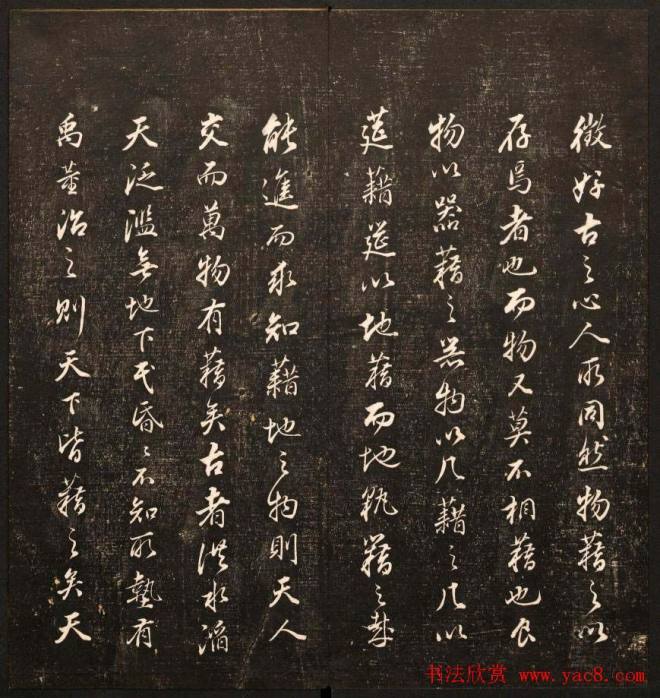 徵好古之心人所同然物藉之以
存焉者也而物又莫不相藉也食
物以器藉之器物以几藉之几以
筵藉筵以地藉而地孰藉之孰
能進而求知藉地之物則天人
交而萬物有藉矣古者洪水滔
天泛濫無地下民昏〻不知所墊有
禹董治之則天下皆藉之矣天
书法欣赏 www.yac8.com